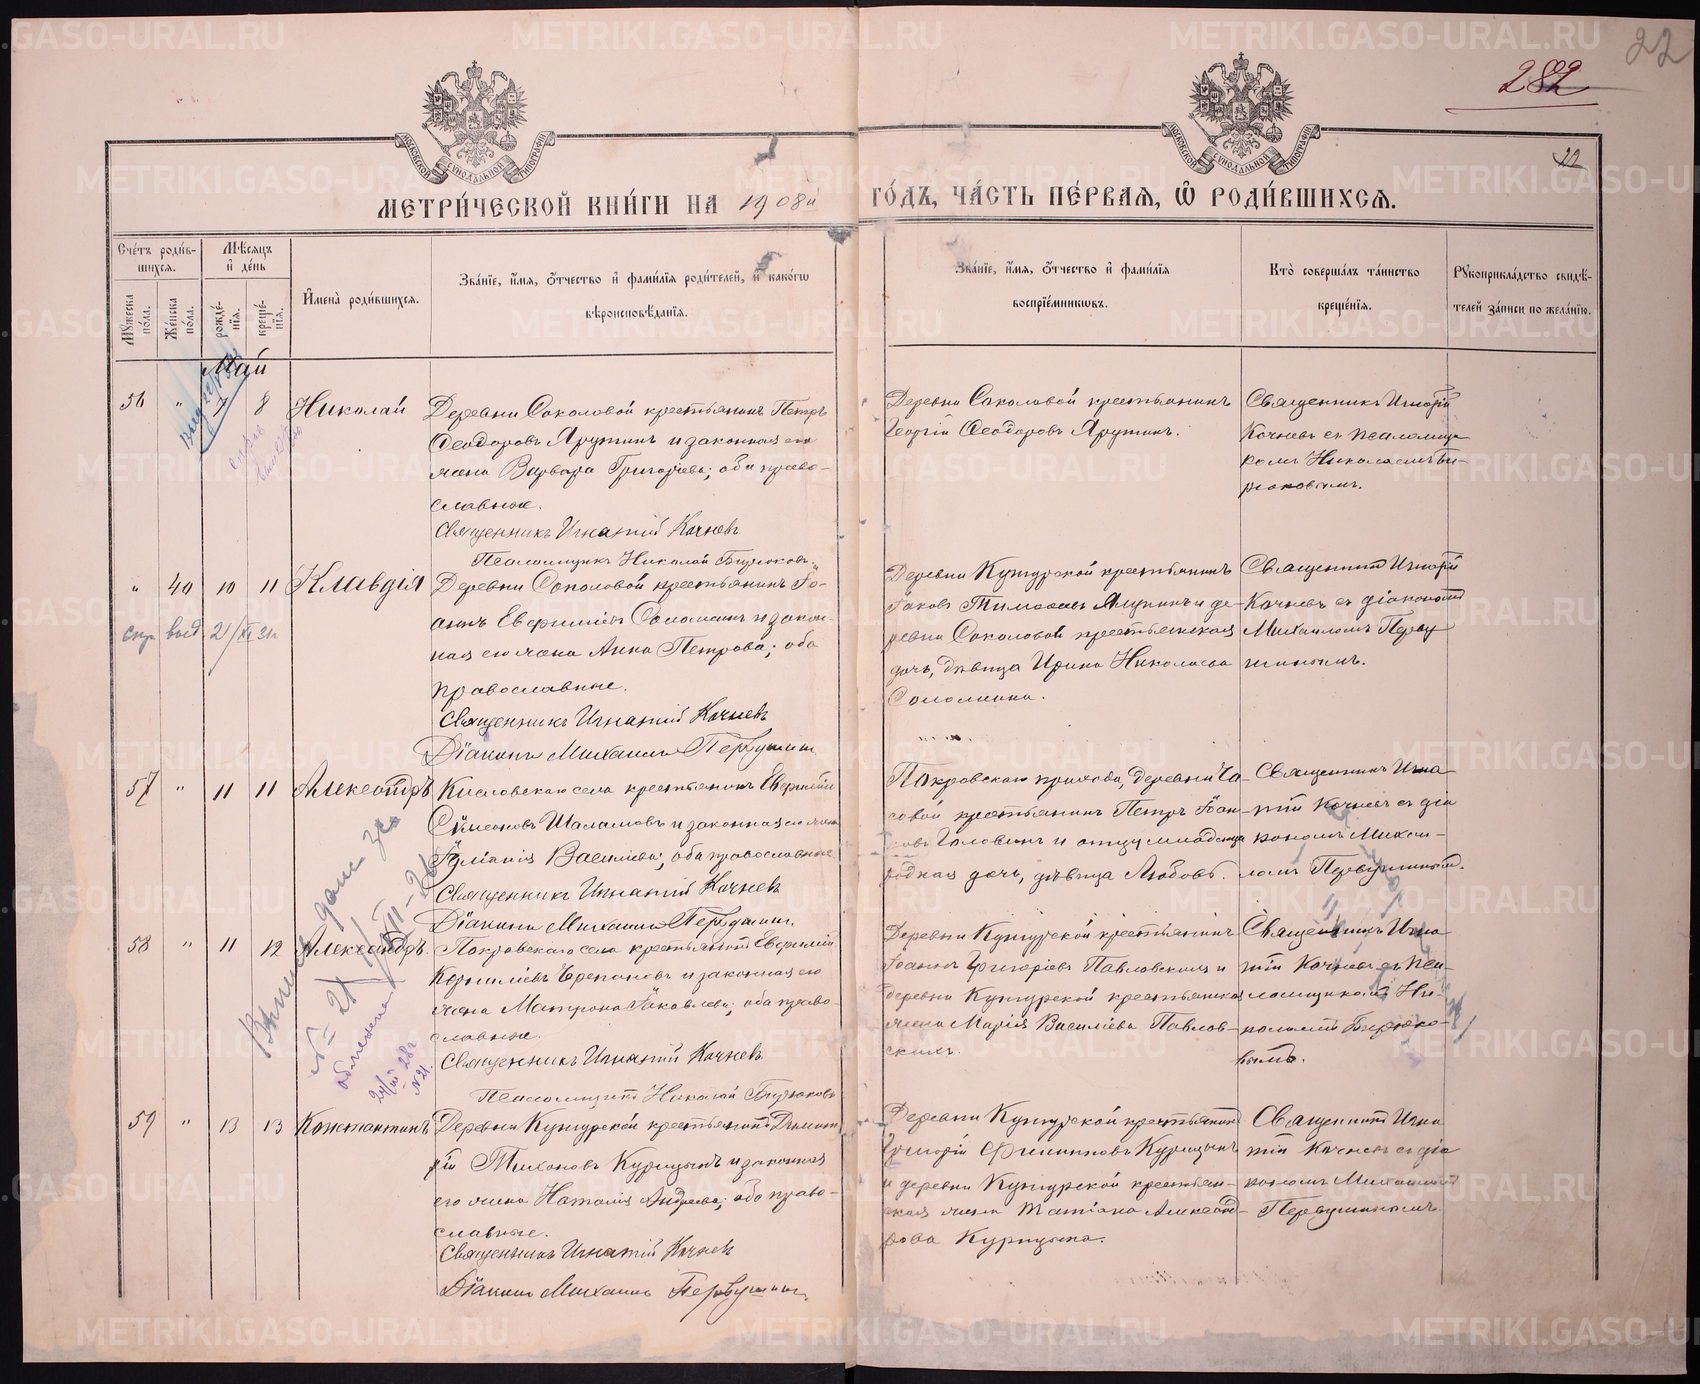 22
282
22
МОСКОВСКОЙ СѴНОДАЛЬНОЙ ТИПОГРАФІИ
МОСКОВСКОЙ СѴНОДАЛЬНОЙ ТИПОГРАФІИ
МЕТРИ́ЧЕСКОЙ КНИ́ГИ НА 1908й ГО́ДЪ, ЧА́СТЬ ПЕ́РВАЯ, Ѡ҆ РОДИ́ВШИХСЯ.
Сче́тъ роди́в-
шихся.
Мꙋжеска по́ла.
Же́нска по́ла.
Мѣ́сяцъ
и҆ де́нь
рожде́-
нїя.
креще́-
нїя.
И҆мена̀ роди́вшихся.
Зва́нїе, и҆́мя, ѻ҆́тчество и҆ фами́лїя роди́телей, и҆ како́гѡ
вѣроисповѣ́данїя.
Зва́нїе, и҆́мя, ѻ҆́тчество и҆ фами́лїя
воспрїе́мникѡвъ.
Кто̀ соверша́лъ та́инство
креще́нїя.
Рꙋкоприкла́дство свидѣ́-
телей за́писи по жела́нїю.
Май
56 " 7 8 Николай
Деревни Соколовой крестьянинъ Петръ
Ѳеодоровъ Ярутинъ и законная его
жена Варвара Григорьева; оба право-
славные.
Священникъ Игнатій Кочневъ
Псаломщикъ Николай Бирюковъ.
Деревни Соколовой крестьянинъ
Георгій Ѳеодоровъ Ярутинъ.
Священникъ Игнатій
Кочневъ съ псаломщи
комъ Николаемъ Би-
рюковымъ.
" 40 10 11 Клавдія
Деревни Соколовой крестьянинъ Іо-
аннъ Евфиміевъ Соломеинъ и закон-
ная его жена Анна Петрова; оба
православные.
Священникъ Игнатій Кочневъ
Діаконъ Михаилъ Первушинъ
Деревни Кунгурской крестьянинъ
Іаковъ Тимофеевъ и де-
ревни Соколовой крестьянская
дочь, дѣвица Ирина Николаева
Соломеина.
Священникъ Игнатій
Кочневъ съ діакономъ
Михаиломъ Перву
шинымъ.
57 " 11 11 Александръ
Кисловскаго села крестьянинъ Евфимій
Сѵмеоновъ Шаламовъ и законная его жена
Іуліанія Васильева; оба православные
Священникъ Игнатій Кочневъ
Діаконъ Михаилъ Первушинъ.
Покровскаго прихода, деревни Ча-
совой крестьянинъ Петръ Іоан-
новъ Головинъ и отцу младенца
родная дочь, дѣвица Любовь.
Священникъ Игна
тій Кочневъ съ діа
кономъ Михаи-
ломъ Первушинымъ.
58 " 11 12 Александръ.
Покровскаго села крестьянинъ Евфимій
Корниліевъ Ерепановъ и законная его
жена Матрона Іаковлева; оба право-
славные.
Священникъ Игнатій Кочневъ
Псаломщикъ Николай Бирюковъ
Деревни Кунгурской крестьянинъ
Іоаннъ Григоріевъ Павловскихъ и
деревни Кунгурской крестьянская
жена Марія Васильева Павлов-
скихъ.
Священникъ Игна
тій Кочневъ съ пса-
ломщикомъ Ни-
колаемъ Бирюко-
вымъ.
59 " 13 13 Константинъ
Деревни Кунгурской крестьянинъ Димит
рій Тихоновъ Курицынъ и законная
его жена Наталія Андреева; оба право-
славные.
Священникъ Игнатій Кочневъ
Діаконъ Михаилъ Первушинъ,
Деревни Кунгурской крестьянинъ
Григорій Филипповъ Курицынъ
и деревни Кунгурской крестьян-
ская жена Татіана Александ-
рова Курицына.
Священникъ Игна
тій Кочневъ съ діа
кономъ Михаиломъ
Первушинымъ.
METRIKI.GASO-URAL.RU